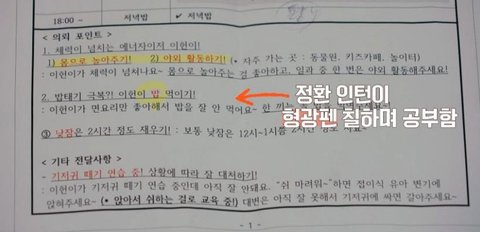 18:00 ~ 저녁밥 ✓ 저녁밥
< 의뢰 포인트 >
1. 체력이 넘치는 에너자이저 이현이!
1) 몸으로 놀아주기! 2) 야외 활동하기! (* 자주 가는 곳 : 동물원, 키즈카페, 놀이터)
: 이현이가 체력이 넘쳐나요~ 몸으로 놀아주는 걸 좋아하고, 일과 중 한 번은 야외 활동해주세요!
2. 밥태기 극복?! 이현이 밥 먹이기!
: 이현이가 면요리만 좋아해서 밥을 잘 안 먹어요~ 한 끼는
정환 인턴이
형광펜 질하며 공부함
③ 낮잠은 2시간 정도 재우기! : 보통 낮잠은 12시~1시쯤 2시간 정도
< 기타 전달사항 >
- 기저귀 떼기 연습 중! 상황에 따라 잘 대처하기!
: 이현이가 기저귀 떼기 연습 중인데 아직 잘 안돼요. "쉬 마려워~"하면 접이식 유아 변기에
앉혀주세요~ (* 앉아서 쉬하는 걸로 교육 중!) 대변은 아직 잘 못해서 기저귀에 싸면 갈아주세요~
- 1 -